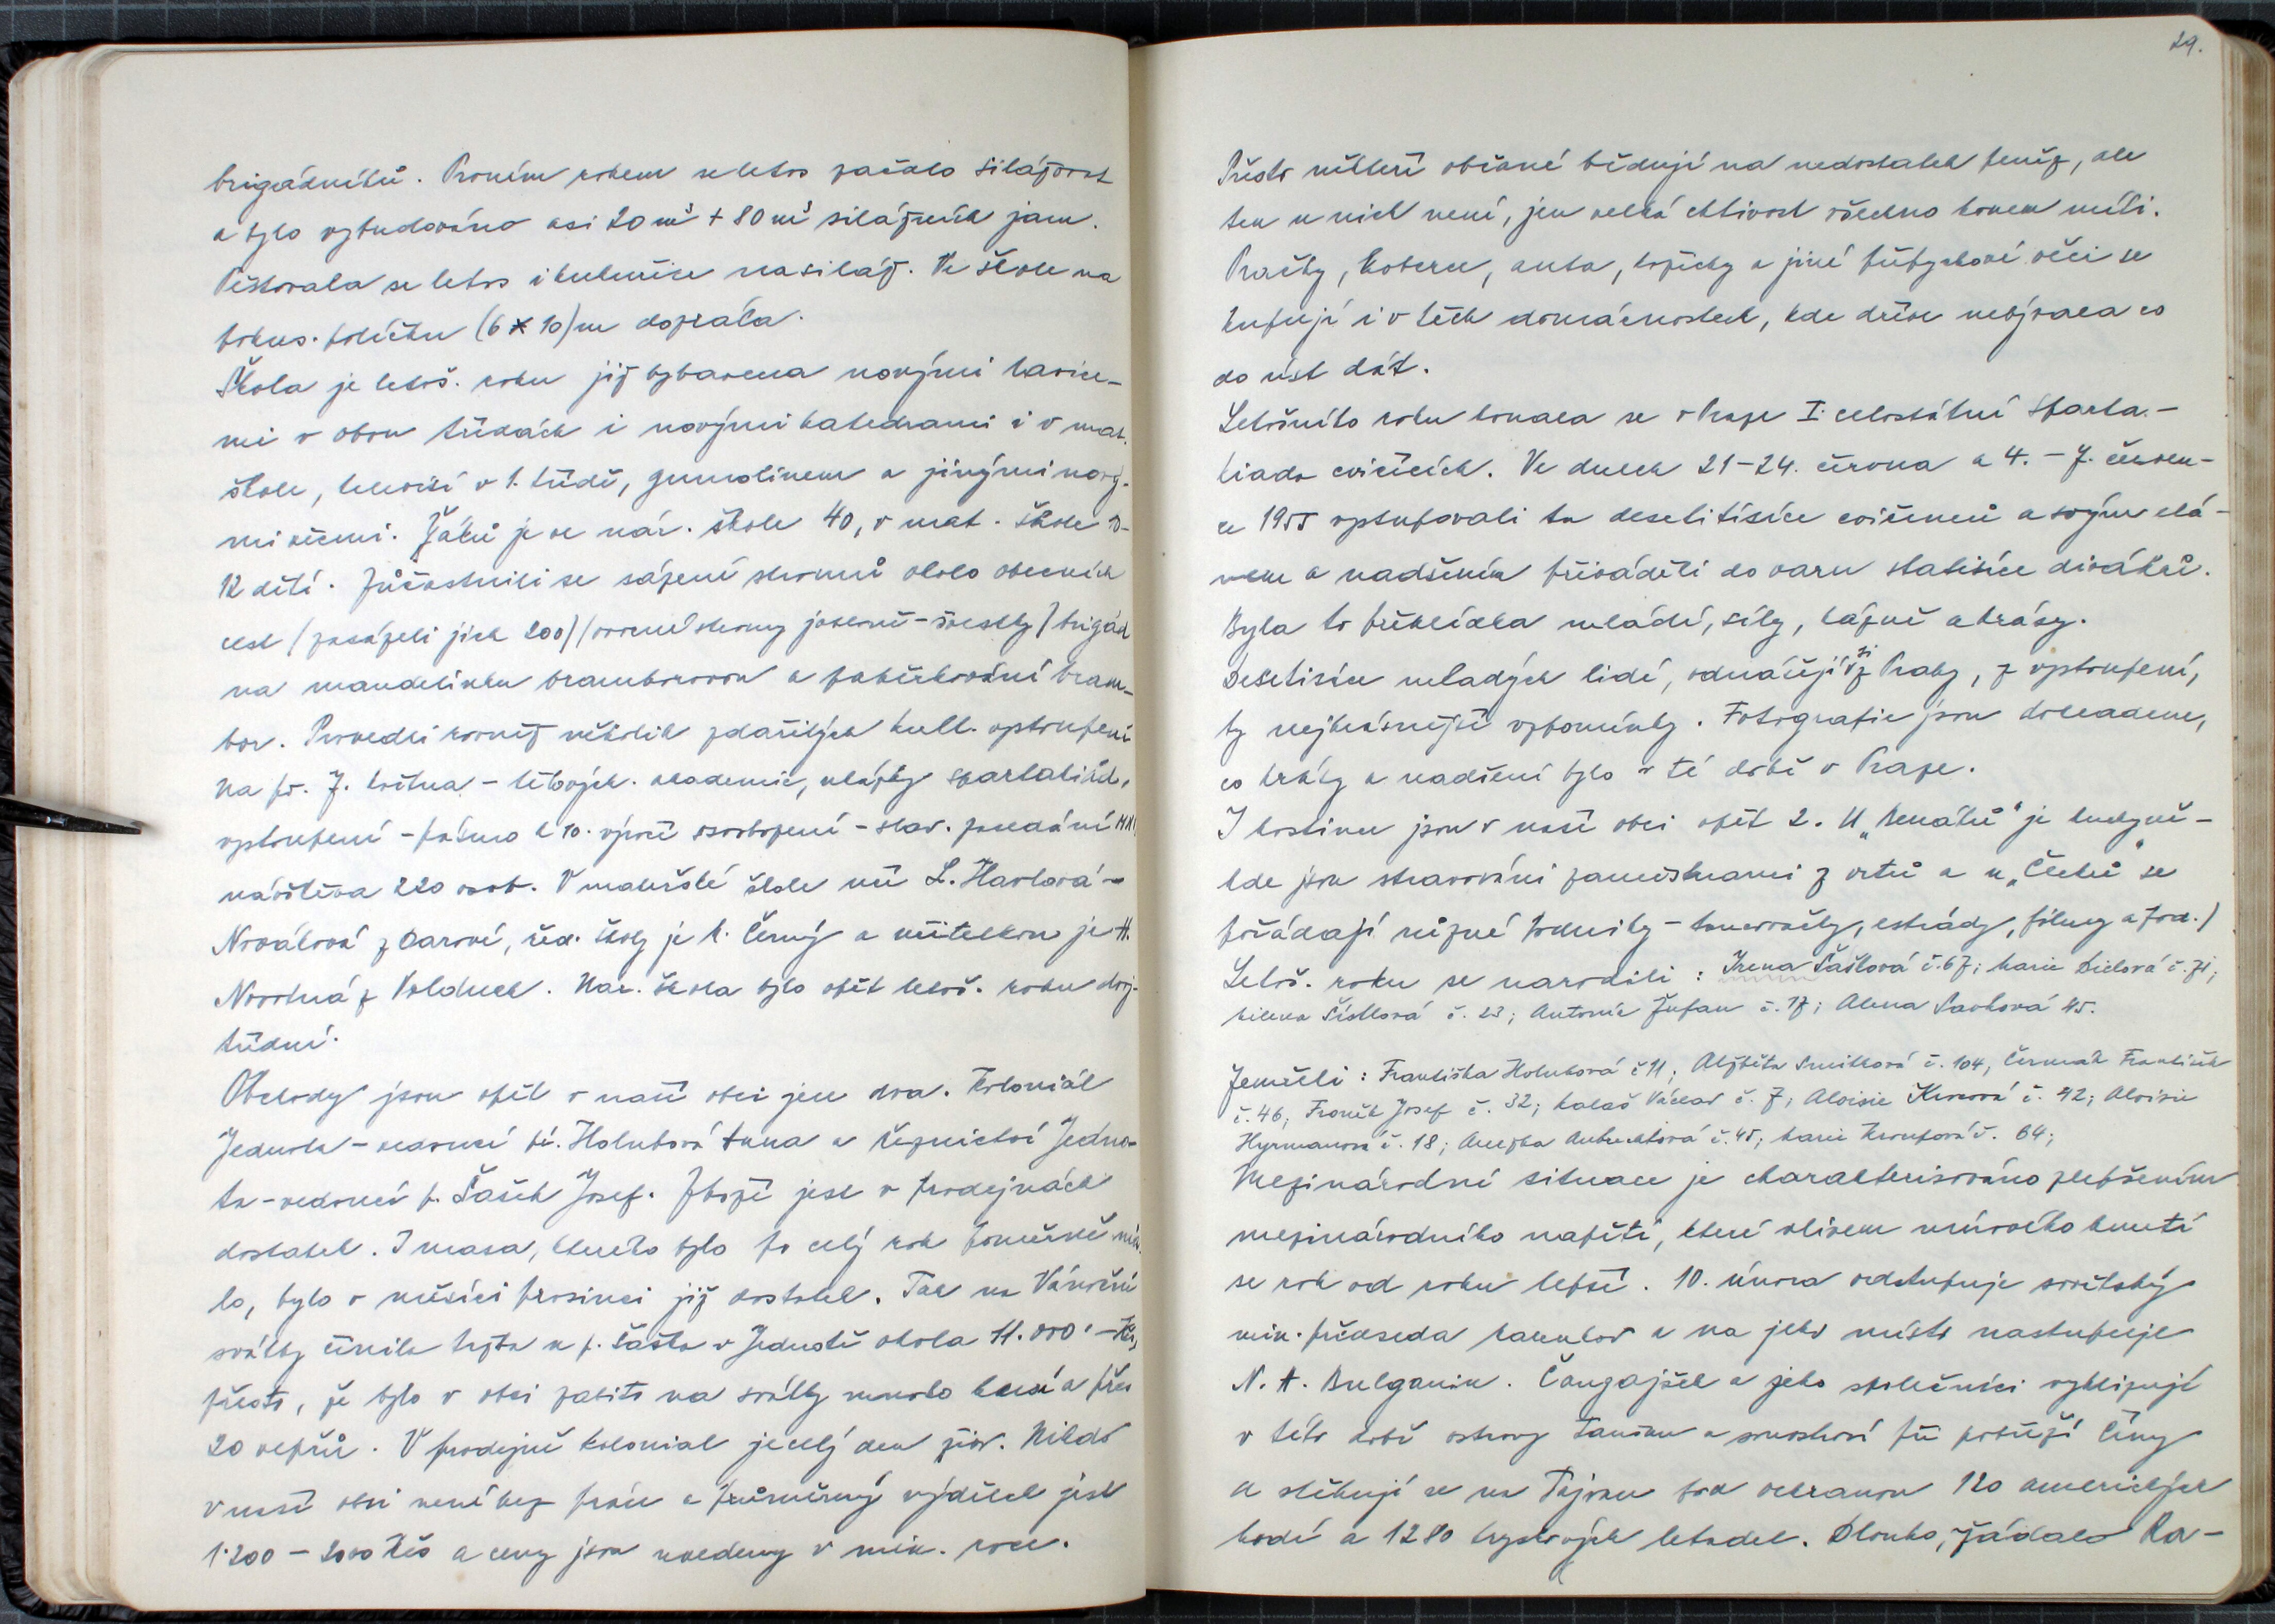 brigádníků. Prvním rokem se letos začalo silážovat
a bylo vybudováno asi 20 m³ + 80 m³ silážních jam.
Pěstovala se letos i kukuřice na siláž. Ve škole na
pokus. políčku (6 x 10) m dozrála.
Škola je letoš. roku již vybavena novými lavice-
mi v obou třídách i novými katedrami i v mat.
škole, televisí v 1. třídě, gumolinem a jinými nový-
mi věcmi. Žáků je ve nár. škole 40, v mat. škole 10-
12 dětí. Zúčastnili se sázení stromů okolo obecních
cest (zasázeli jich 200) (ovocné stromy jabloně - švestky) brigád
na mandelinku bramborovou a paběrkování bram-
bor. Provedli rovněž několik zdařilých kult. vystoupení
na př. 7. května - tělových. akademie, ukázky spartakiád,
vystoupení - pásmo k 10. výročí osvobození - slav. zasedání MNV
návštěva 220 osob. V mateřské škole učí L. Havlová -
Nováková z Oarové, řed. školy je K. Černý a učitelkou je H.
Novotná z Volduch. Nár. škola byla opět letoš. roku dvoj-
třídní.
Obchody jsou opět v naší obci jen dva. Koloniál
Jednota - vedoucí pí. Holubová Anna a řeznictví Jedno-
ta - vedoucí p. Šašek Josef. Zboží jest v prodejnách
dostatek. I masa, kterého bylo po celý rok poměrně má-
lo, bylo v měsíci prosinci již dostatek. Tak na Vánoční
svátky činila tržba u p. Šaška v Jednotě okolo 11.000 - Kčs,
přesto, že bylo v obci zabito na svátky mnoho husí a přes
20 vepřů. V prodejně koloniál je celý den živo. Nikdo
v naší obci není bez práce a průměrný výdělek jest
1.200 - 2000 Kčs a ceny jsou uvedeny v min. roce.
29.
Přesto někteří občané bědují na nedostatek peněz, ale
ten u nich není, jen velká chtivost všechno honem míti.
Pračky, koberce, auta, topičky a jiné přepychové věci se
kupují i v těch domácnostech, kde dříve nebývalo co
do úst dát.
Letošního roku konala se v Praze I. celostátní Sparta-
kiáda cvičících. Ve dnech 21-24. června a 4. - 7. červen-
ce 1955 vystupovali tu desetitisíce cvičenců a svým elá-
nem a nadšením přiváděli do varu statisíce diváků.
Byla to přehlídka mládí, síly, kázně a krásy.
Desetisíce mladých lidí, odnášejí si z Prahy, z vystoupení,
ty nejkrásnější vzpomínky. Fotografie jsou dokladem,
co krásy a nadšení bylo v té době v Praze.
I hostince jsou v naší obci opět 2. U "Benátů" je kuchyně -
kde jsou stravováni zaměstnanci z vrtů a u "Čečků" se
pořádají různé podniky - tancovačky, estrády, filmy a pod. )
Letoš. roku se narodili: Irena Šašková č. 67; Marie Dielová č. 71;
Milena Šístková č. 23; Antonín Župan č. 17; Alena Pavlová 45.
Zemřeli: Františka Holubová č 11; Alžběta Smitková č. 104, Čermák František
č. 46, Froněk Josef č. 32; Kalaš Václav č. 7; Aloisie Krocová č. 42; Aloisie
Hyrmanová č. 18; Anežka Aubrechtová č. 45; Marie Kroupová č. 64;
Mezinárodní situace je charakterisováno zlepšením
mezinárodního napětí, které vlivem mírového hnutí
se rok od roku lepší. 10. února odstupuje sovětský
min. předseda Malenkov a na jeho místo nastupuje
N. A. Bulganin. Čangajšek a jeho společníci vyklizují
v této době ostrovy Tančeu a souostroví při pobřeží Číny
a stěhují se na Tajvan pod ochranou 120 amerických
lodí a 1280 tryskových letadel. Dlouho, žádalo Ra-